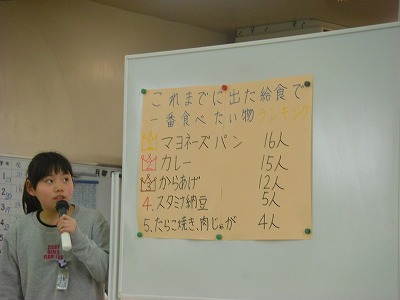 これまでに出た給食で
一番食べたい物ランキング
1 マヨネーズパン 16人
2 カレー 15人
3 からあげ 12人
4. スタミナ納豆 5人
5. たらこ焼き、肉じゃが 4人